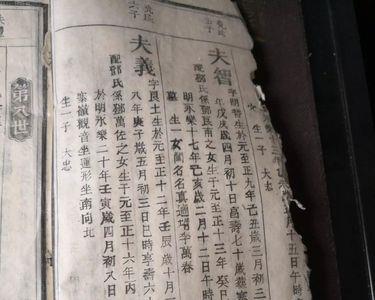 十五日午時
生一子
夫智
字明哲生於元至正九年己丑歲三月初
年戊戌歲四月初十日高壽七十歲塟
配鄧氏係鄧民南之女生于元至正十三年癸巳
明永樂十七年己亥歲二月十二日午時
墓 生一女閨名名真適 李萬春
夫義
字良士生於元至正十二年壬辰歲十月
八年庚子歲五月初三日巳時享壽六十
配鄧氏係鄧萬佐之女生于元至正十六年丙
於明永樂二十年壬寅歲四月初八日
寨嶺觀音坐蓮形坐南向北
生一子 大忠
第八世